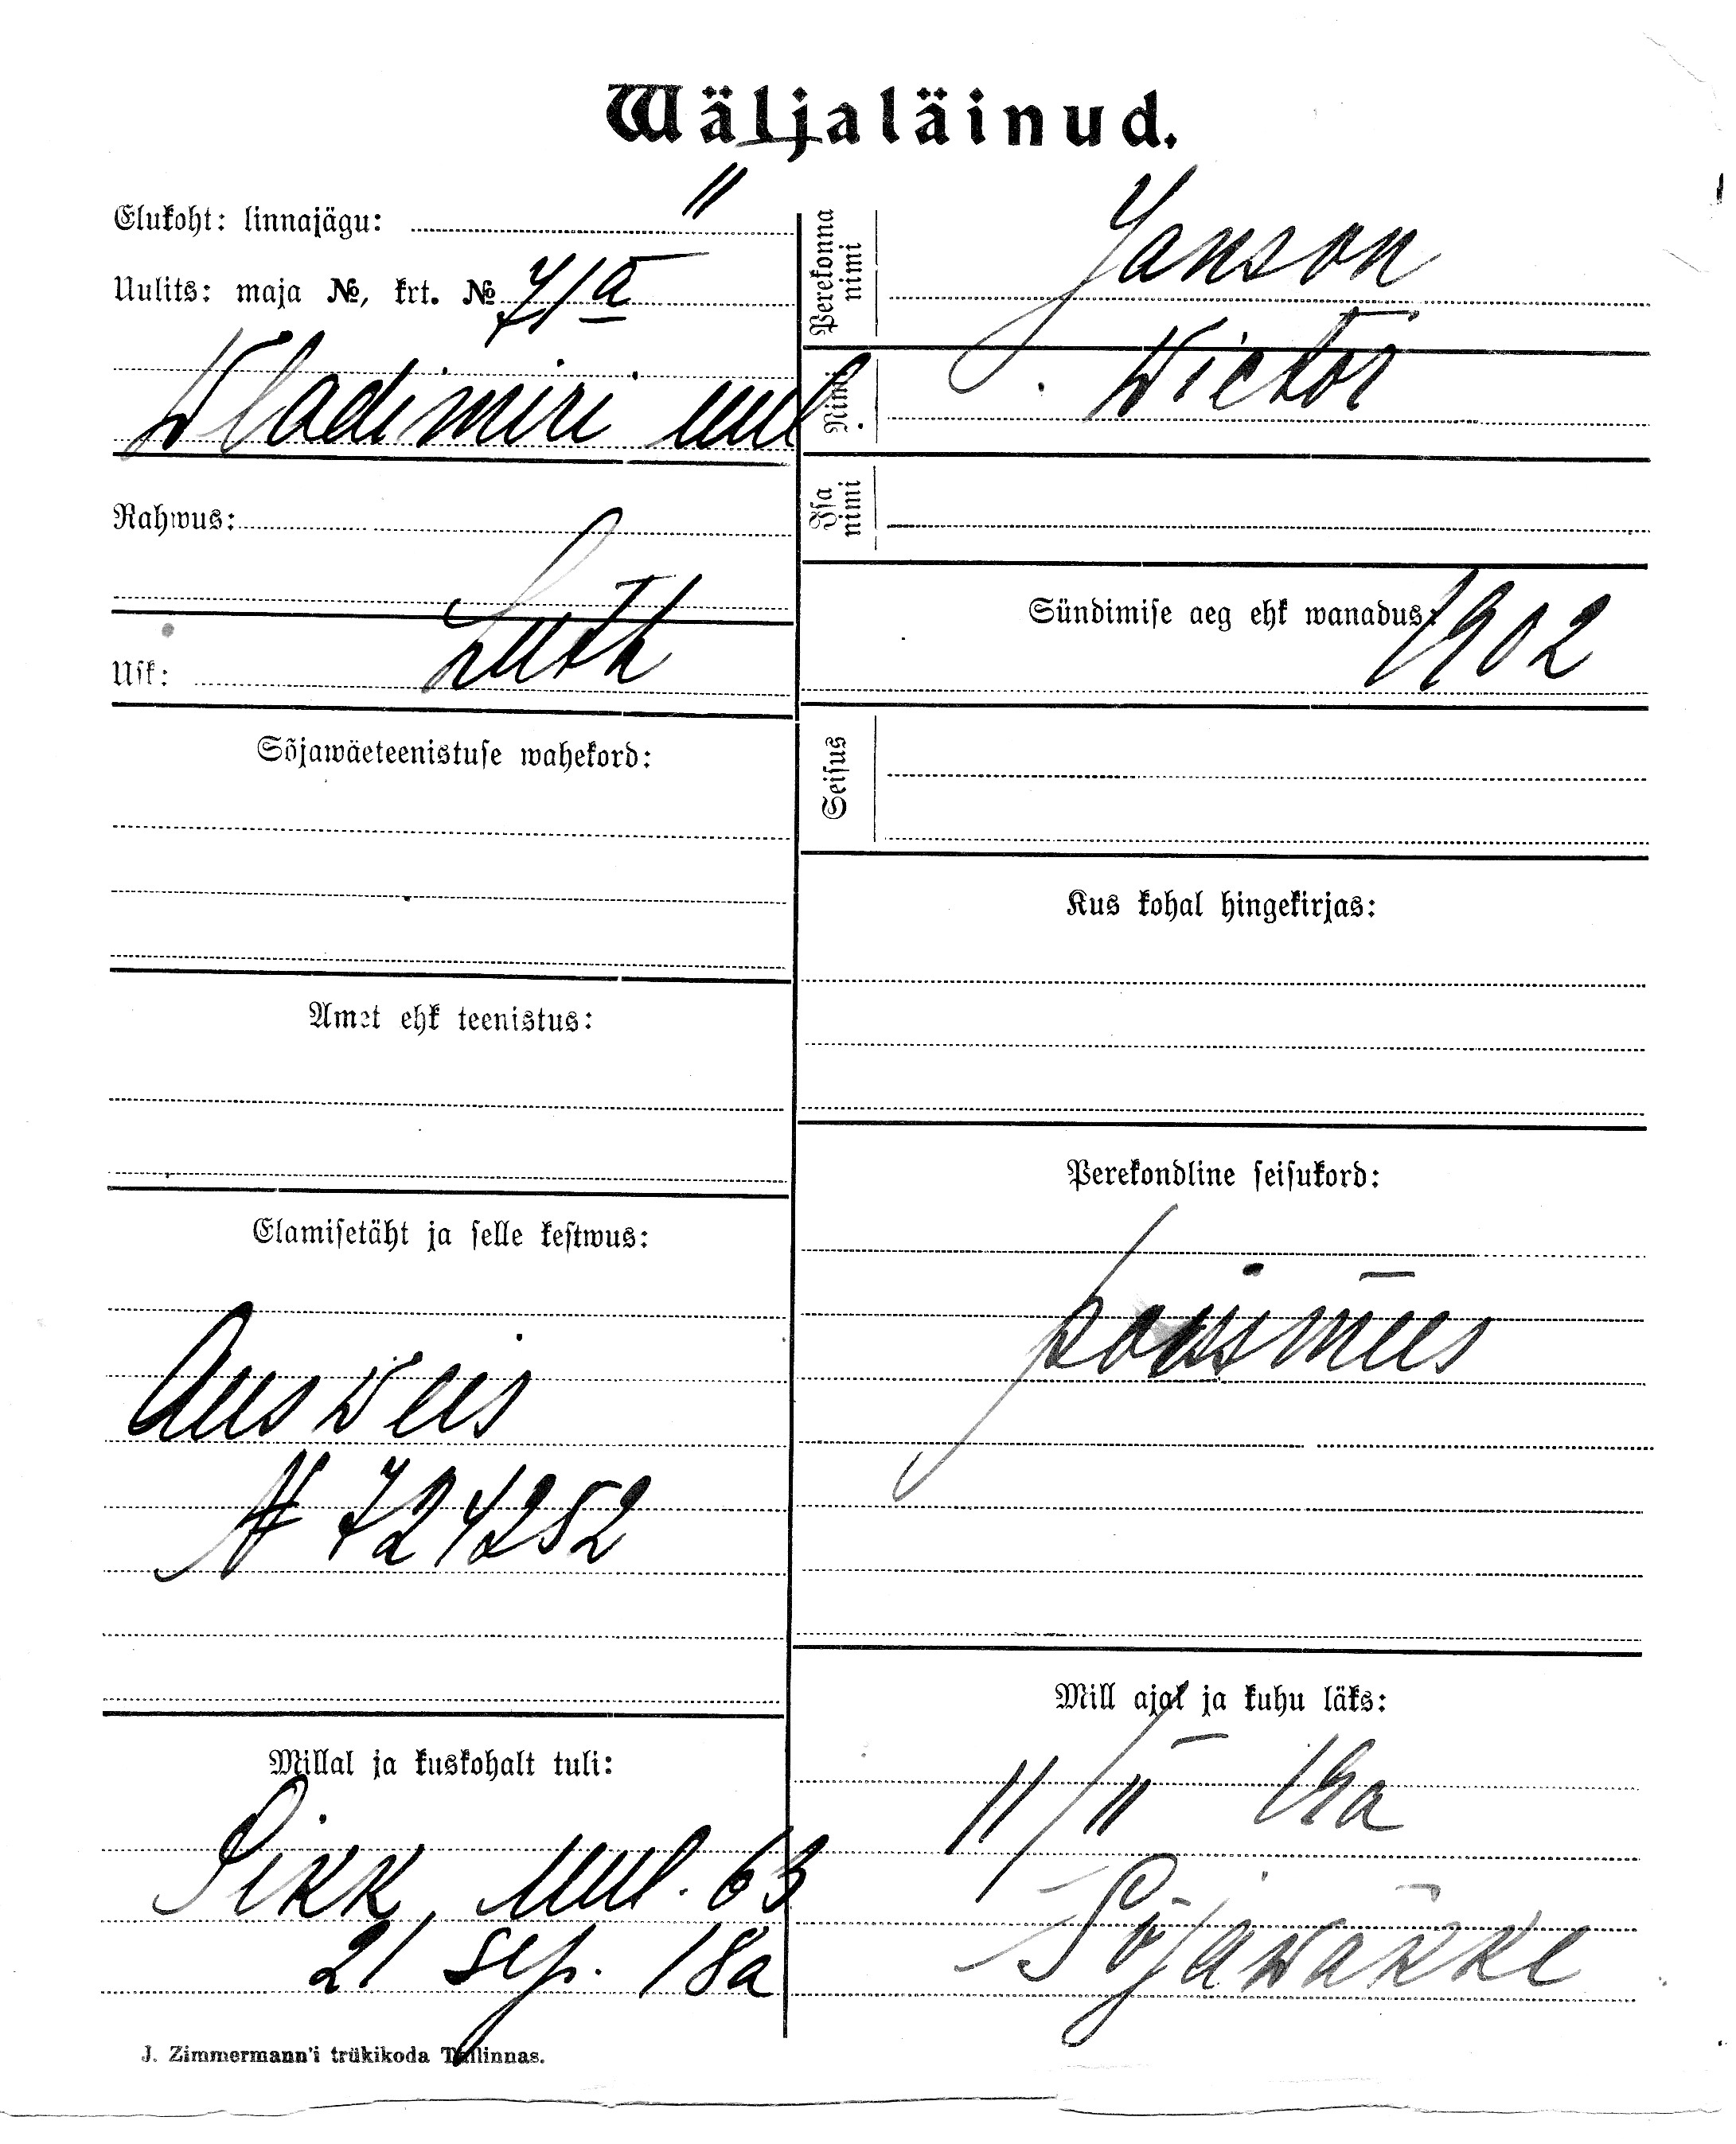 Wäljaläinud.
Elukoht: linnajägu: II
Uulits: maja №, krt. № 7/a
Wladimiri uul.
Rahwus:
Usk: Luth
Sõjawäeteenistuse wahekord:
Amet ehk teenistus:
Elamisetäht ja selle kestwus:
Ausweis
N 724252
Millal ja kuskohalt tuli:
Pikk uul. 63
21 sep. 18a
J. Zimmermann'i trükikoda Tallinnas.
Perekonna nimi Janson
Nimi Wictor
Isa nimi
Sündimise aeg ehk wanadus: 1902
Seisus
Kus kohal hingekirjas:
Perekondline seisukord:
poismees
Mill ajal ja kuhu läks:
11/II 19a
Sõjawäkke